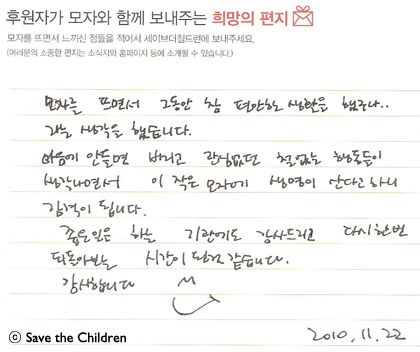 후원자가 모자와 함께 보내주는 희망의 편지
모자를 뜨면서 느끼신 점들을 적어서 세이브더칠드런에 보내주세요.
(여러분의 소중한 편지는 소식지와 홈페이지 등에 소개될 수 있습니다.)
모자를 뜨면서 그동안 참 편안한 생활을 했구나..
라는 생각을 했습니다.
마음에 안들면 버리고 관심없던 철없는 행동들이
생각나면서 이 작은 모자에 생명이 산다고 하니
감격이 됩니다.
좋은일은 하는 기관에도 감사드리고 다시한번
되돌아보는 시간이 된것 같습니다.
감사합니다
ⓒ Save the Children
2010. 11. 22